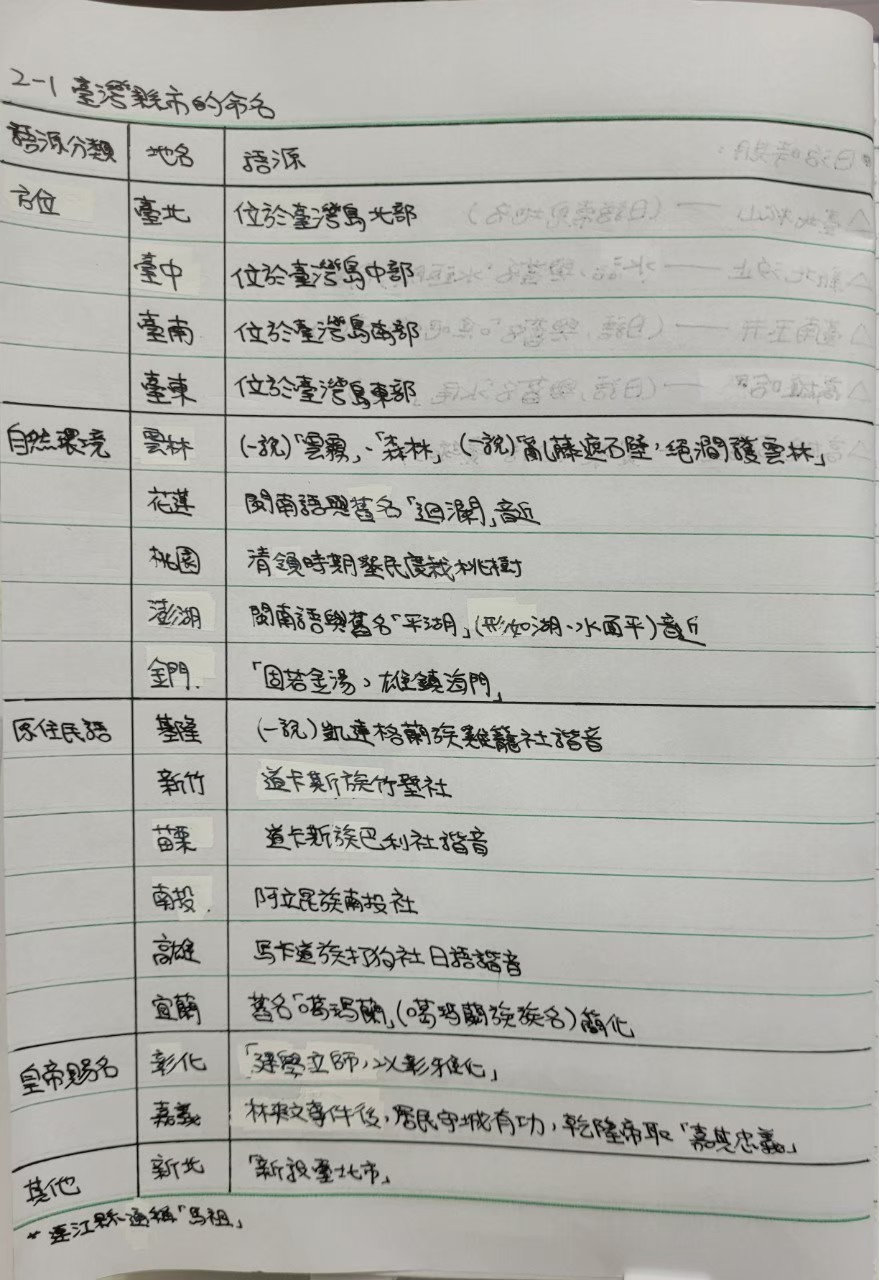 2-1 臺灣縣市的命名
語源分類 地名 語源
方位 臺北 位於臺灣島北部
臺中 位於臺灣島中部
臺南 位於臺灣島南部
臺東 位於臺灣島東部
自然環境 雲林 (一說)「雲霧」、「森林」 (一說)「亂藤遮石壁,絕澗護雲林」
花蓮 閩南語與舊名「迴瀾」音近
桃園 清領時期墾民廣栽桃樹
澎湖 閩南語與舊名「平湖」(形如湖、水面平)音近
金門 「固若金湯、雄鎮海門」
原住民語 基隆 (一說)凱達格蘭族雞籠社諧音
新竹 道卡斯族竹塹社
苗栗 道卡斯族巴利社諧音
南投 阿立昆族南投社
高雄 馬卡道族打狗社日語諧音
宜蘭 舊名「噶瑪蘭」(噶瑪蘭族族名)簡化
皇帝賜名 彰化 「建學立師,以彰雅化」
嘉義 林爽文事件後,居民守城有功,乾隆帝取「嘉其忠義」
其他 新北 「新設臺北市」
* 連江縣通稱「馬祖」